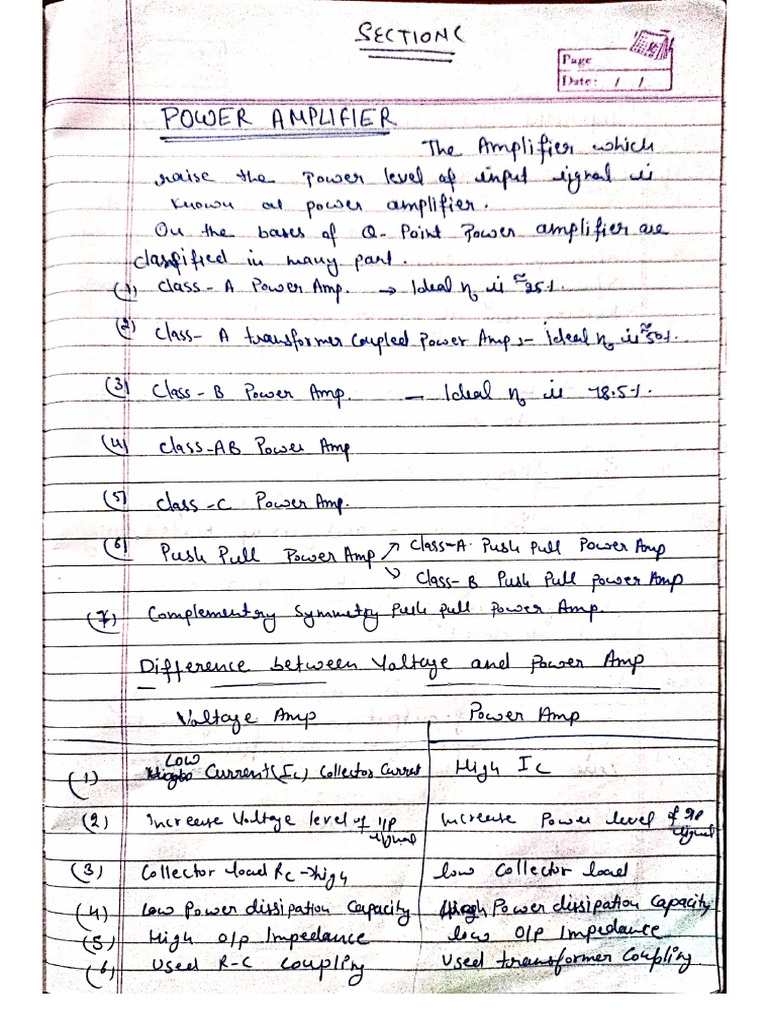 SECTION C
Page
Date: / /
POWER AMPLIFIER
The Amplifier which
raise the power level of input signal is
known as power amplifier.
On the bases of Q-Point Power amplifier are
classified in many part.
(1) Class-A Power Amp. → Ideal η is ≈25%.
(2) Class-A transformer Coupled Power Amp :- Ideal η is ≈50%.
(3) Class-B Power Amp. — Ideal η is 78.5%.
(4) Class-AB Power Amp
(5) Class-C Power Amp.
(6) Push Pull Power Amp ↗ Class-A Push Pull Power Amp
↘ Class-B Push Pull Power Amp
(7) Complementry Symmetry Push Pull Power Amp.
Difference between Voltage and Power Amp
Voltage Amp | Power Amp
(1) Low Current (Ic) Collector Curret | High Ic
(2) Increase Voltage level of i/p signal | Increase Power level of I/P signal
(3) Collector load Rc → high | low Collector load
(4) Low Power dissipation Capacity | High Power dissipation Capacity
(5) High O/p Impedance | low O/p Impedance
(6) Used R-C Coupling | Used transformer Coupling